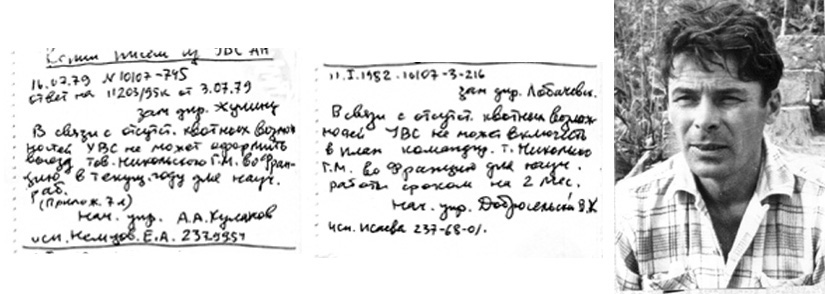 Копии писем из УВС АН
16.07.79 N 10107-745
ответ на 11203/95к от 3.07.79
зам дир. Жулину
В связи с отсутст. квотных возмож
ностей УВС не может оформить
выезд тов. Никольского Г.М. во Фран-
цию в текущ. году для науч.
раб.
(Прилож. 7л)
Нач. упр. А.А. Кулаков
исп. Немцов. Е.А. 2379951
11.I.1982. 10107-3-216
зам дир. Лобачеву.
В связи с отсутст. квотных возмож
ностей УВС не может включить
в план командир. т. Никольско
Г.М. во Францию для науч.
работы сроком на 2 мес.
Нач. упр. Добросельский В.К
исп. Исаева 237-68-01.